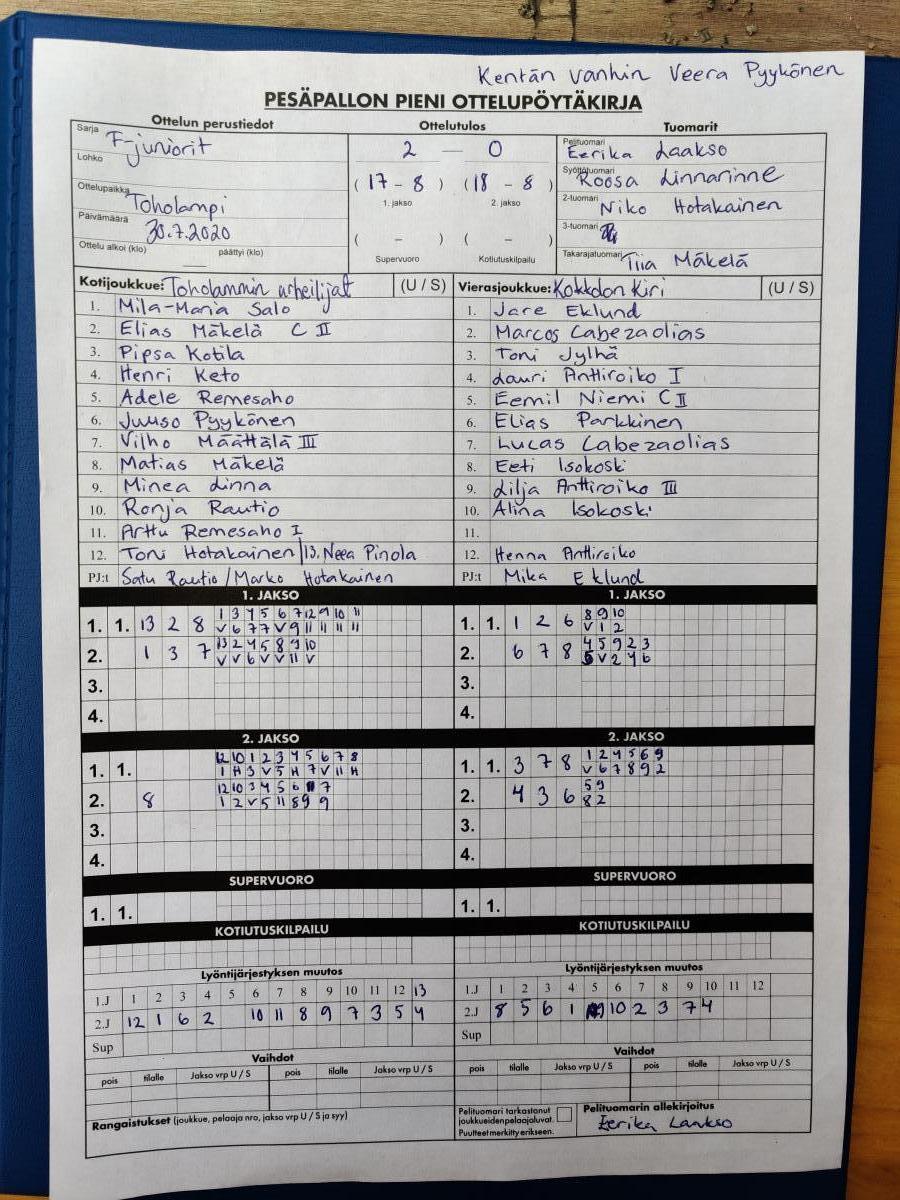 Kentän vanhin Veera Pyykönen
PESÄPALLON PIENI OTTELUPÖYTÄKIRJA
Ottelun perustiedot
Sarja F-juniorit
Lohko
Ottelupaikka Toholampi
Päivämäärä 30.7.2020
Ottelu alkoi (klo) päättyi (klo)
Ottelutulos
2 — 0
( 17 - 8 ) ( 18 - 8 )
1. jakso 2. jakso
( - ) ( - )
Supervuoro Kotiutuskilpailu
Tuomarit
Pelituomari Eerika Laakso
Syöttötuomari Roosa Linnarinne
2-tuomari Niko Hotakainen
3-tuomari
Takarajatuomari Tiia Mäkelä
Kotijoukkue: Toholammin urheilijat (U / S)
1. Mila-Maria Salo
2. Elias Mäkelä C II
3. Pipsa Kotila
4. Henri Keto
5. Adele Remesaho
6. Juuso Pyykönen
7. Vilho Määttälä III
8. Matias Mäkelä
9. Minea Linna
10. Ronja Rautio
11. Arttu Remesaho I
12. Toni Hotakainen | 13. Neea Pinola
PJ:t Satu Rautio / Marko Hotakainen
Vierasjoukkue: Kokkolan Kiri (U / S)
1. Jare Eklund
2. Marcos Cabezaolias
3. Toni Jylhä
4. Lauri Anttiroiko I
5. Eemil Niemi C II
6. Elias Parkkinen
7. Lucas Cabezaolias
8. Eeti Isokoski
9. Lilja Anttiroiko III
10. Alina Isokoski
11.
12. Henna Anttiroiko
PJ:t Mika Eklund
1. JAKSO
1. 1. 13 2 8 1 3 4 5 6 7 12 9 10 11
V 6 7 7 V 9 11 11 11 11
2. 1 3 7 13 2 4 5 8 9 10
V V 6 V V 11 V
3.
4.
1. JAKSO
1. 1. 1 2 6 8 9 10
V 1 2
2. 6 7 8 4 5 9 2 3
5 V 2 4 6
3.
4.
2. JAKSO
1. 1. 12 10 1 2 3 4 5 6 7 8
1 H 3 V 5 H 7 V 11 H
2. 8 12 10 3 4 5 6 7
1 2 V 5 11 8 9 9
3.
4.
2. JAKSO
1. 1. 3 7 8 1 2 4 5 6 9
V 6 7 8 9 2
2. 4 3 6 5 9
8 2
3.
4.
SUPERVUORO
1. 1.
SUPERVUORO
1. 1.
KOTIUTUSKILPAILU
KOTIUTUSKILPAILU
Lyöntijärjestyksen muutos
1.J 1 2 3 4 5 6 7 8 9 10 11 12 13
2.J 12 1 6 2 10 11 8 9 7 3 5 4
Sup
Lyöntijärjestyksen muutos
1.J 1 2 3 4 5 6 7 8 9 10 11 12
2.J 8 5 6 1 10 2 3 9 7 4
Sup
Vaihdot
pois tilalle Jakso vrp U / S pois tilalle Jakso vrp U / S
Vaihdot
pois tilalle Jakso vrp U / S pois tilalle Jakso vrp U / S
Rangaistukset (joukkue, pelaaja nro, jakso vrp U / S ja syy)
Pelituomari tarkastanut
joukkueiden pelaajaluvat.
Puutteet merkitty erikseen.
Pelituomarin allekirjoitus
Eerika Laakso